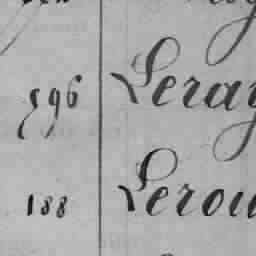 596 Leray
188 Lerou